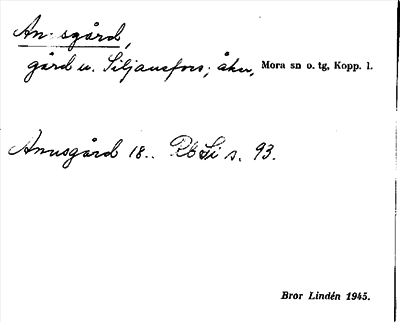 An:sgård,
gård u. Siljansfors; åker, Mora sn o. tg, Kopp. l.
Annsgård 18.. RbSi s. 93.
Bror Lindén 1945.